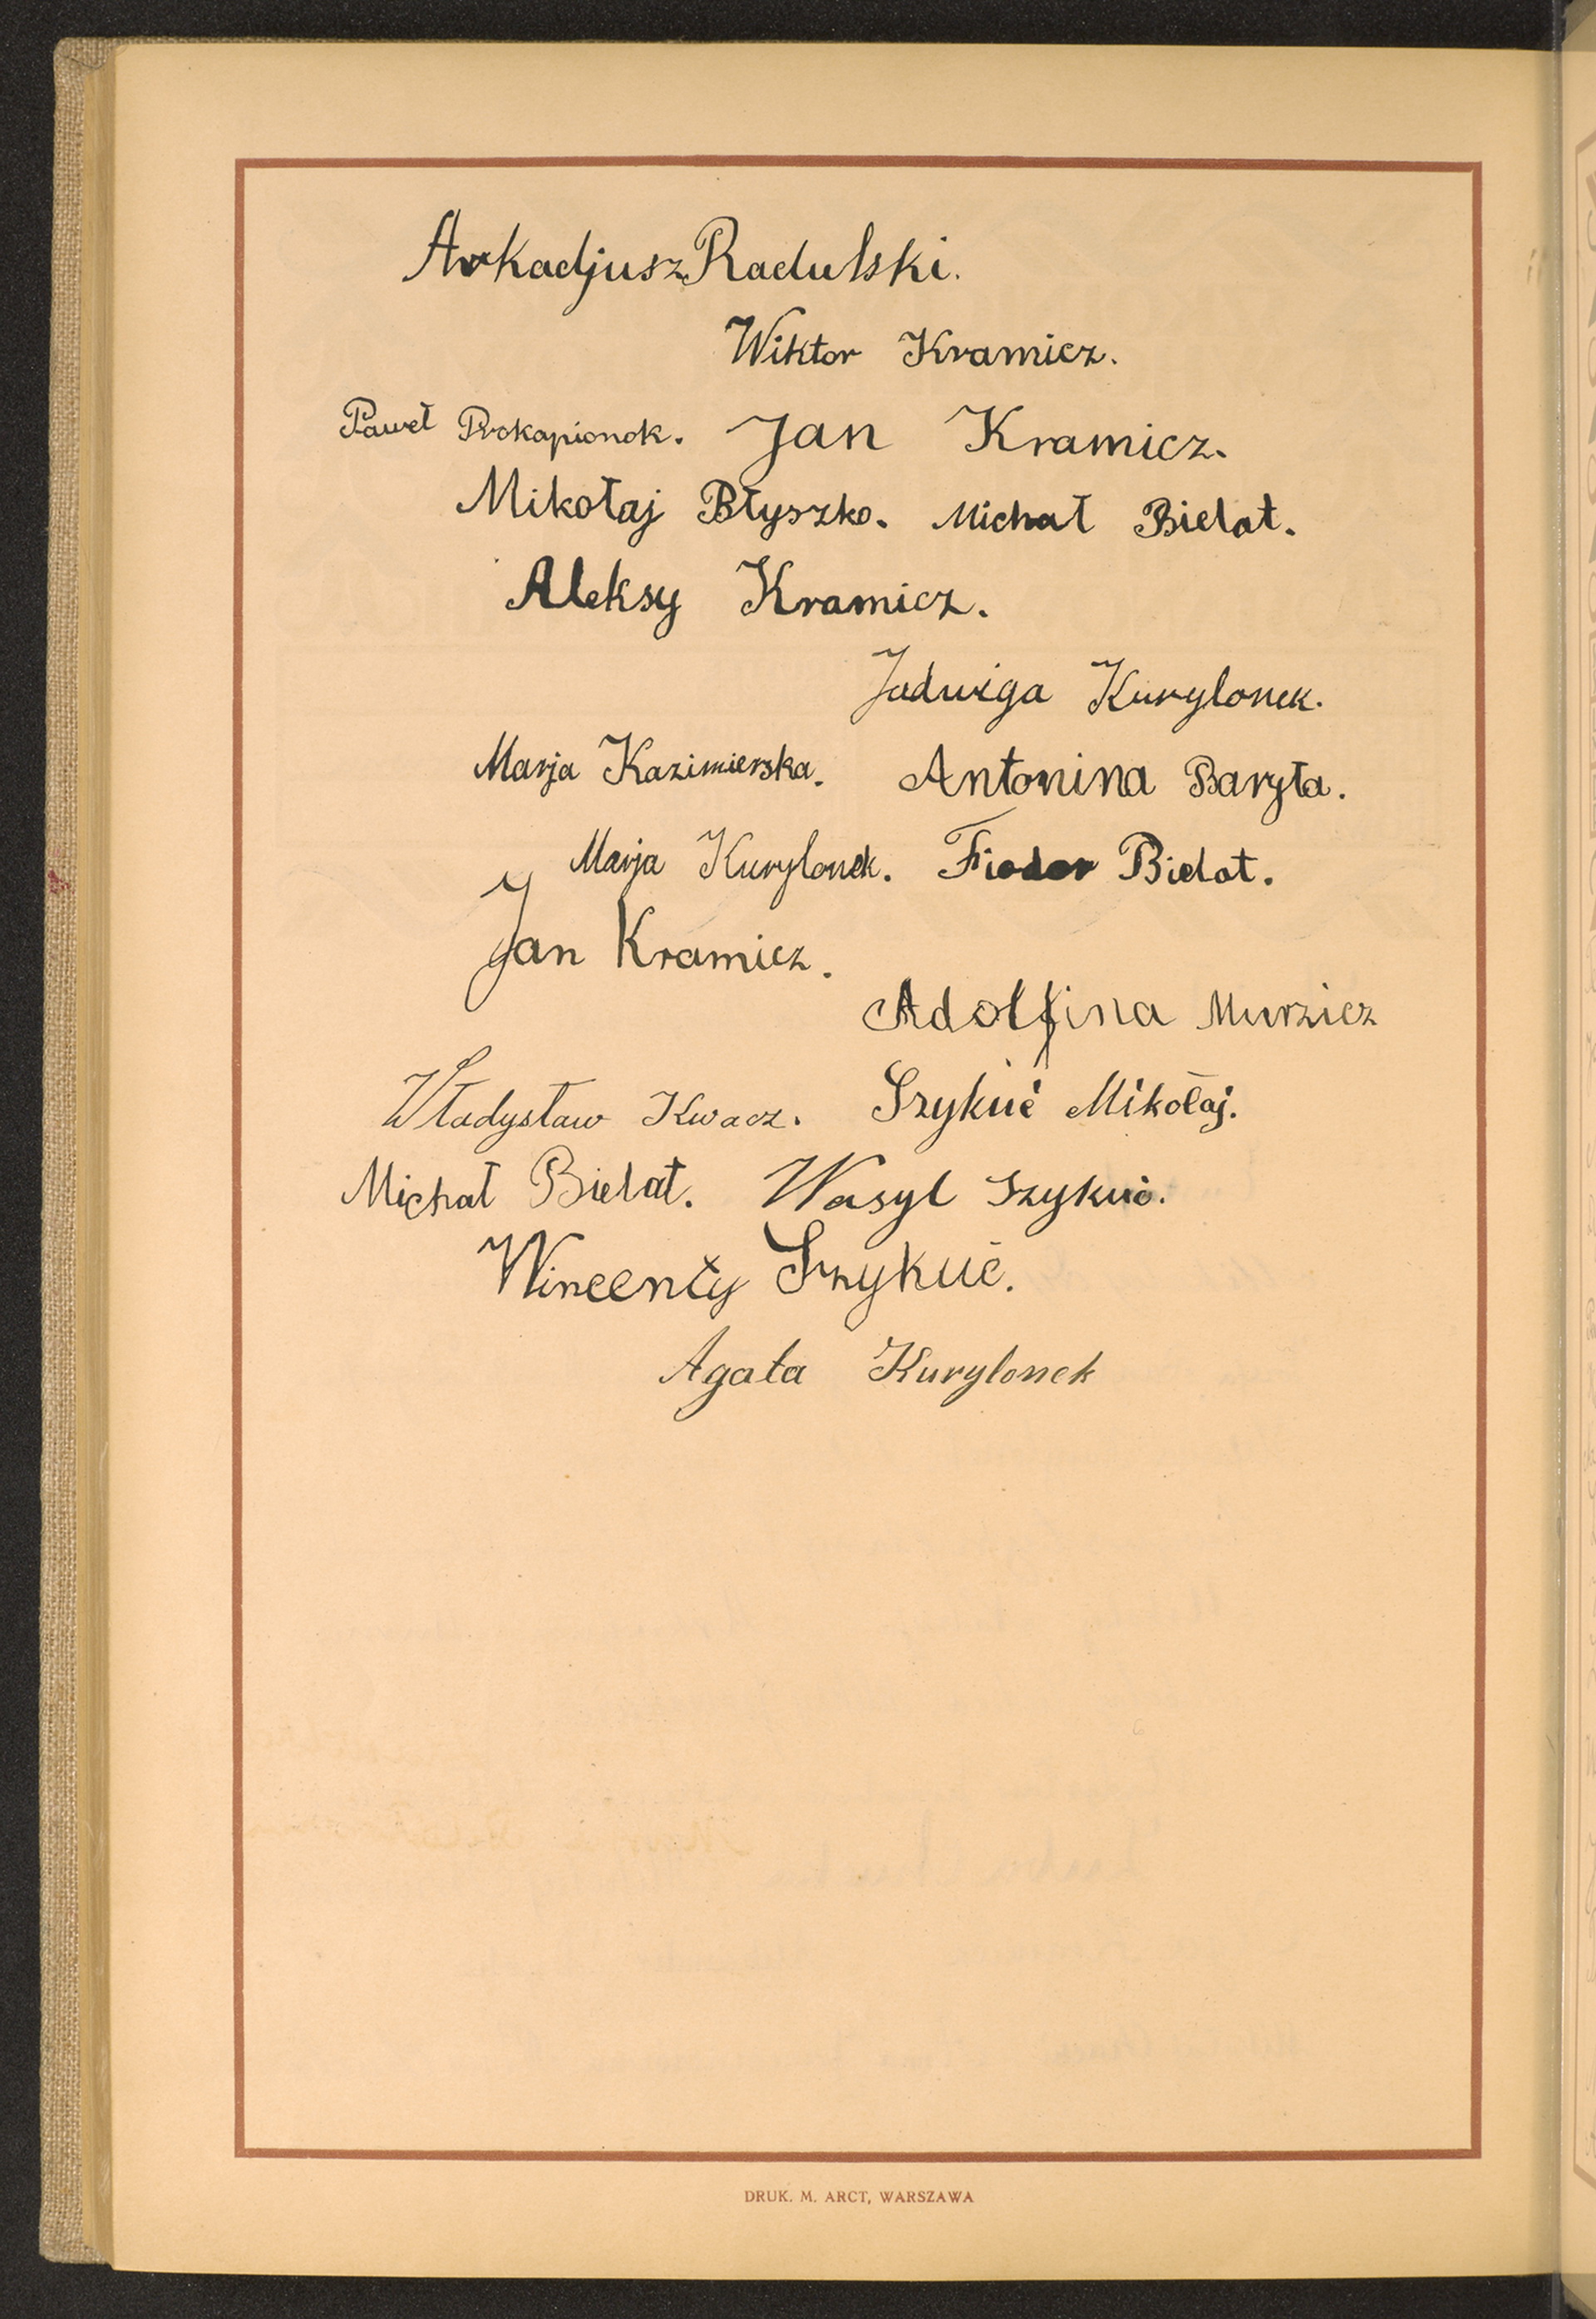 Arkadjusz Radulski.
Wiktor Kramicz.
Paweł Prokapionok. Jan Kramicz.
Mikołaj Błyszko. Michał Bielat.
Aleksy Kramicz.
Jadwiga Kurylonek.
Marja Kazimierska. Antonina Baryła.
Marja Kurylonek. Fiodor Bielat.
Jan Kramicz.
Adolfina Murzicz
Władysław Kwacz. Szykuć Mikołaj.
Michał Bielat. Wasyl Szykuć.
Wincenty Szykuć.
Agata Kurylonek
DRUK. M. ARCT, WARSZAWA